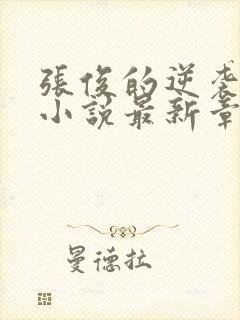 張俊的逆襲
小說最新章
曼德拉